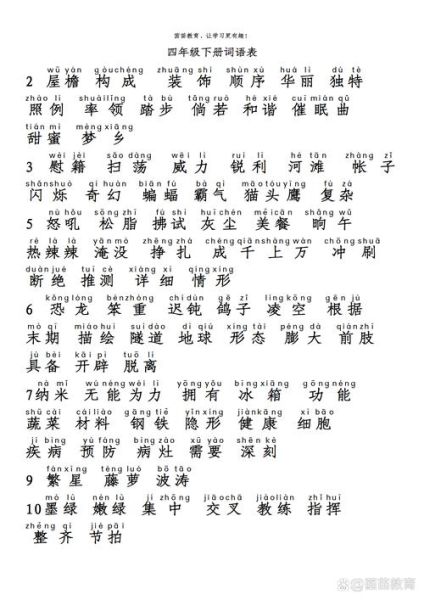 茵茵教育，让学习更有趣！
四年级下册词语表
wū yán gòuchéng zhuāng shì shùn xù huá lì dú tè
2 屋檐 构成 装饰 顺序 华丽 独特
zhào lì shuàilǐng tà bù tǎng ruò hé xié cuī mián qǔ
照例 率领 踏步 倘若 和谐 催眠曲
tián mì mèng xiāng
甜蜜 梦乡
wèi jiè sǎo dàng wēi lì ruì lì hé tān zhàng zǐ
3 慰籍 扫荡 威力 锐利 河滩 帐子
shǎnshuò qí huàn biān fú bà qì māo tóu yīng fù zá
闪烁 奇幻 蝙蝠 霸气 猫头鹰 复杂
nù hǒu sōng zhī fú shì huī chén měi cān shǎng wǔ
5 怒吼 松脂 拂拭 灰尘 美餐 晌午
rè là là yān mò zhēng zhá chéng qiān shàng wàn chōng shuā
热辣辣 淹没 挣扎 成千上万 冲刷
duàn jué tuī cè xiáng xì qíng xíng
断绝 推测 详细 情形
kǒng lóng bèn zhòng chí dùn gē zǐ líng kōng gēn jù
6 恐龙 笨重 迟钝 鸽子 凌空 根据
mò qī miáo huì suì dào dì qiú xíng tài péng dà qián zhī
末期 描绘 隧道 地球 形态 膨大 前肢
jù bèi kāi pì tuō lí
具备 开辟 脱离
nà mǐ wú néng wéi lì yōng yǒu bīng xiāng gōng néng
7 纳米 无能为力 拥有 冰箱 功能
shū cài cái liào gāng tiě yǐn xíng jiàn kāng xì bāo
蔬菜 材料 钢铁 隐形 健康 细胞
jí bìng yù fáng bìng zào xū yào shēn kè
疾病 预防 病灶 需要 深刻
fán xīng téng luó bō tāo
9 繁星 藤萝 波涛
mò lǜ nèn lǜ jí zhōng jiāo chā jiào liàn zhǐ huī
10 墨绿 嫩绿 集中 交叉 教练 指挥
zhěng qí jié pāi
整齐 节拍